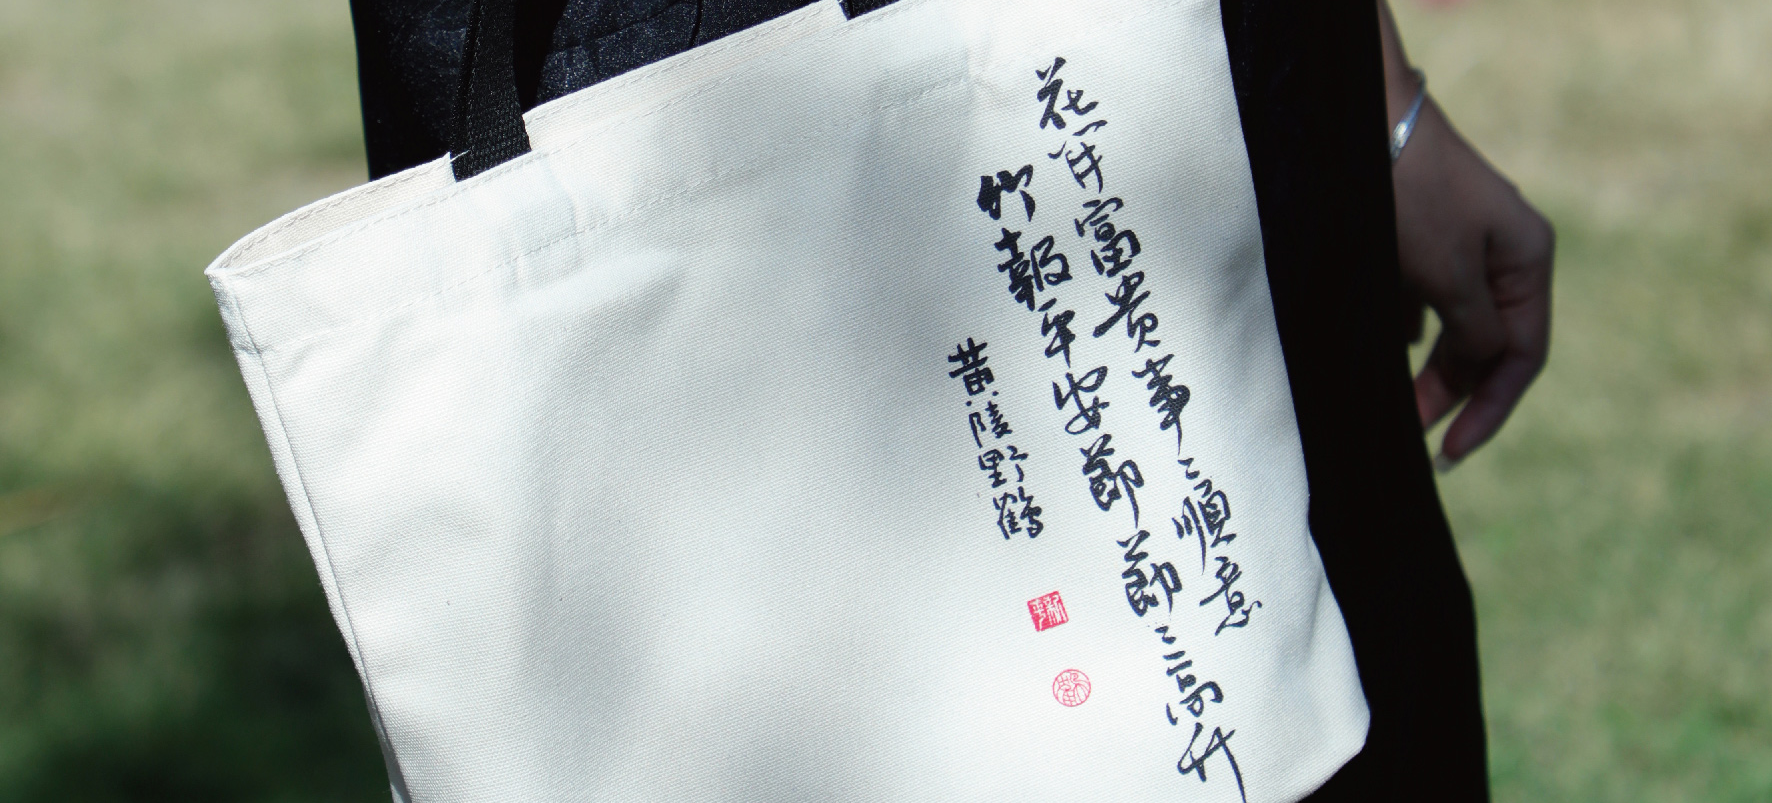 花開富貴事〻順意
竹報平安節節〻高升
黃陵野鶴